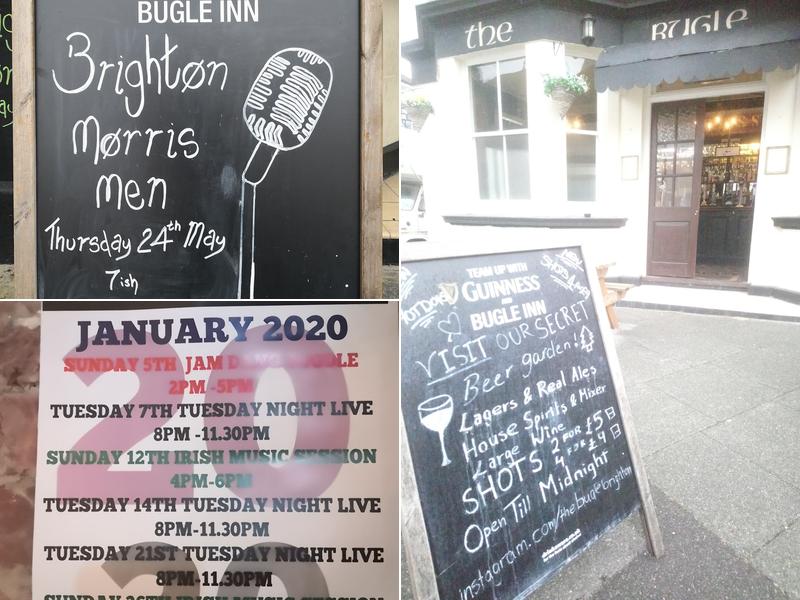 BUGLE INN
Brightøn
Mørris
men
Thursday 24th May
7ish
the BUGLE
TEAM UP WITH
GUINNESS
AND
BUGLE INN
VISIT OUR SECRET
Beer garden!
Lagers & Real Ales
House Spirits & Mixer
Large Wine
SHOTS 2 FOR £5
4 FOR £9
Open Till Midnight
instagram.com/thebuglebrighton
JANUARY 2020
SUNDAY 5TH JAM
2PM -5PM
TUESDAY 7TH TUESDAY NIGHT LIVE
8PM -11.30PM
SUNDAY 12TH IRISH MUSIC SESSION
4PM-6PM
TUESDAY 14TH TUESDAY NIGHT LIVE
8PM-11.30PM
TUESDAY 21ST TUESDAY NIGHT LIVE
8PM-11.30PM
SUNDAY 26TH IRISH MUSIC SESSION